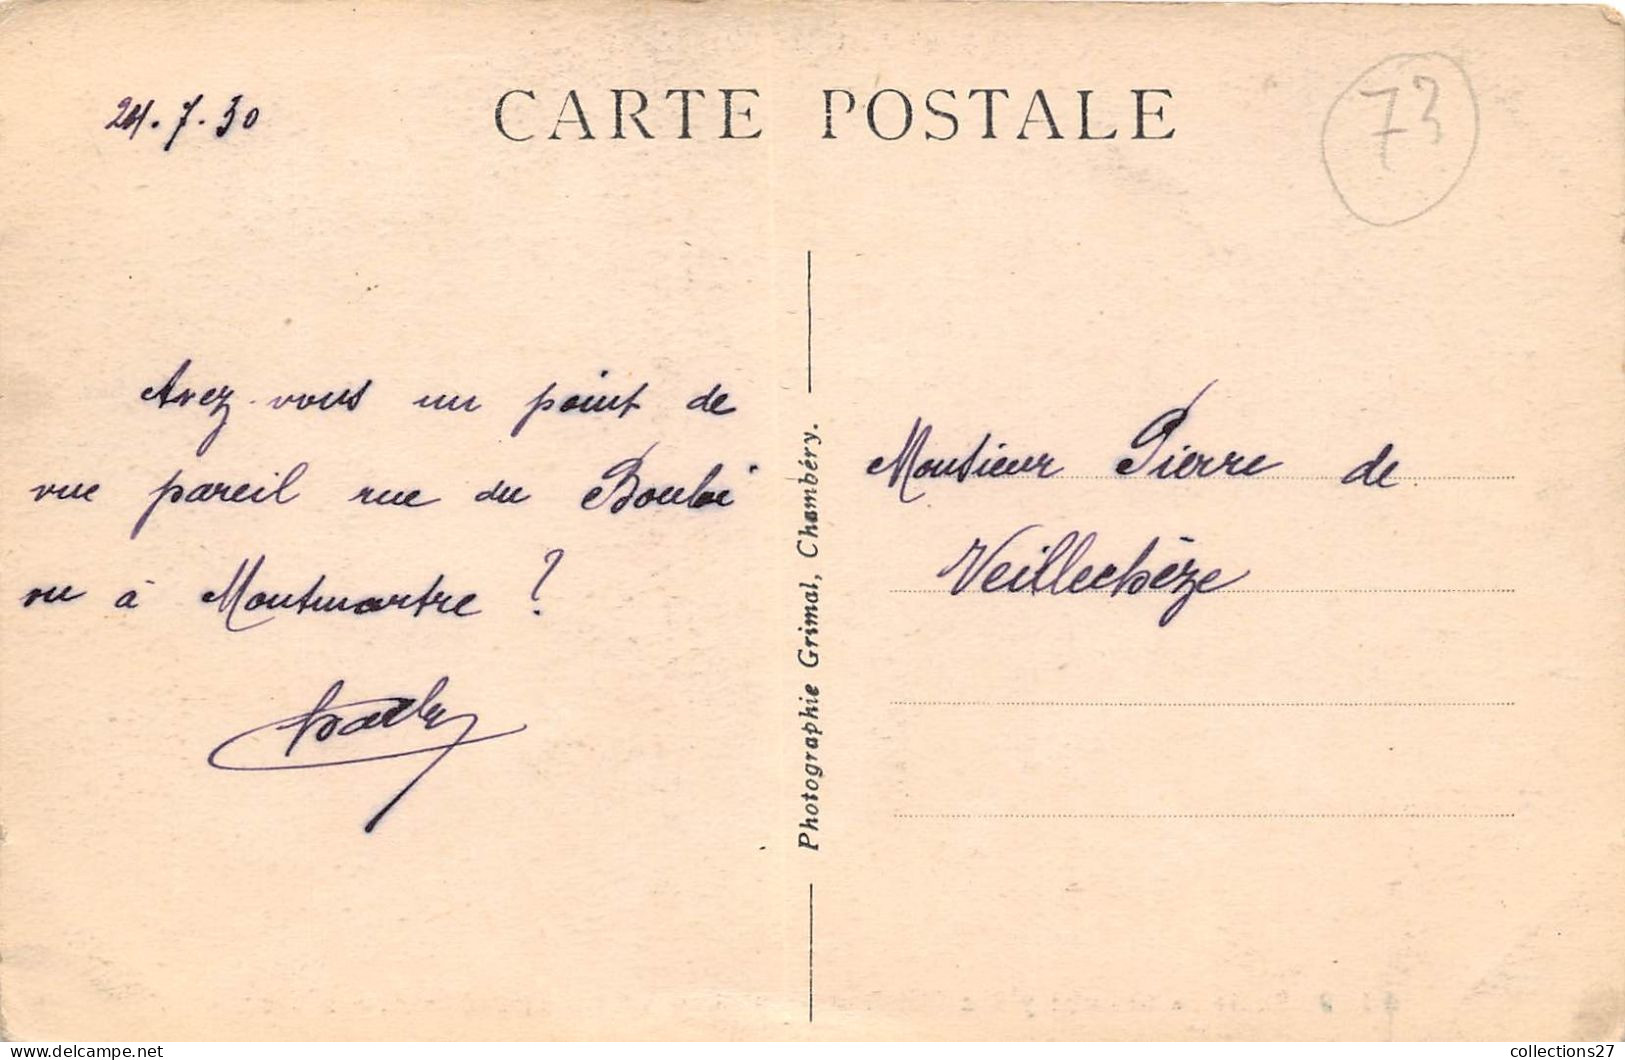 24.7.30
CARTE POSTALE
73
Avez-vous un point de
vue pareil rue du Bouloi
ou à Montmartre ?
Photographie Grimal, Chambéry.
Monsieur Pierre de
Veillechèze
collections27